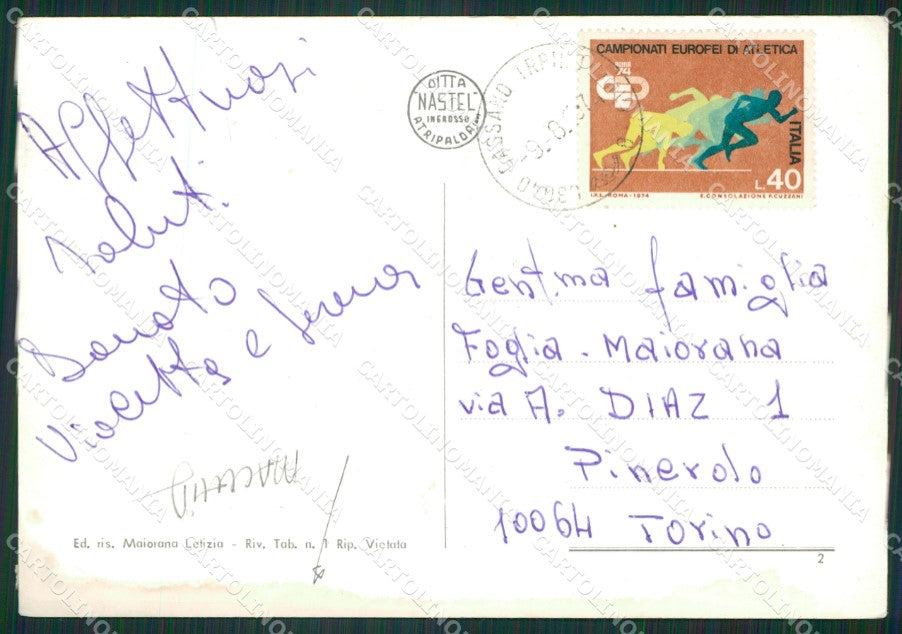 Affettuosi
saluti.
Donato
Violetta e
DITTA
NASTEL
INGROSSO
ATRIPALDA
CASSANO IRPINO
CAMPIONATI EUROPEI DI ATLETICA
ROMA
74
ITALIA
L.40
I.P.S.-ROMA-1974
E.CONSOLAZIONE F.CUZZANI
Gent.ma famiglia
Foglia - Maiorana
via A. DIAZ 1
Pinerolo
10064 Torino
Ed. ris. Maiorana Letizia - Riv. Tab. n. 1 Rip. Vietata
2
CARTOLINOMANIA